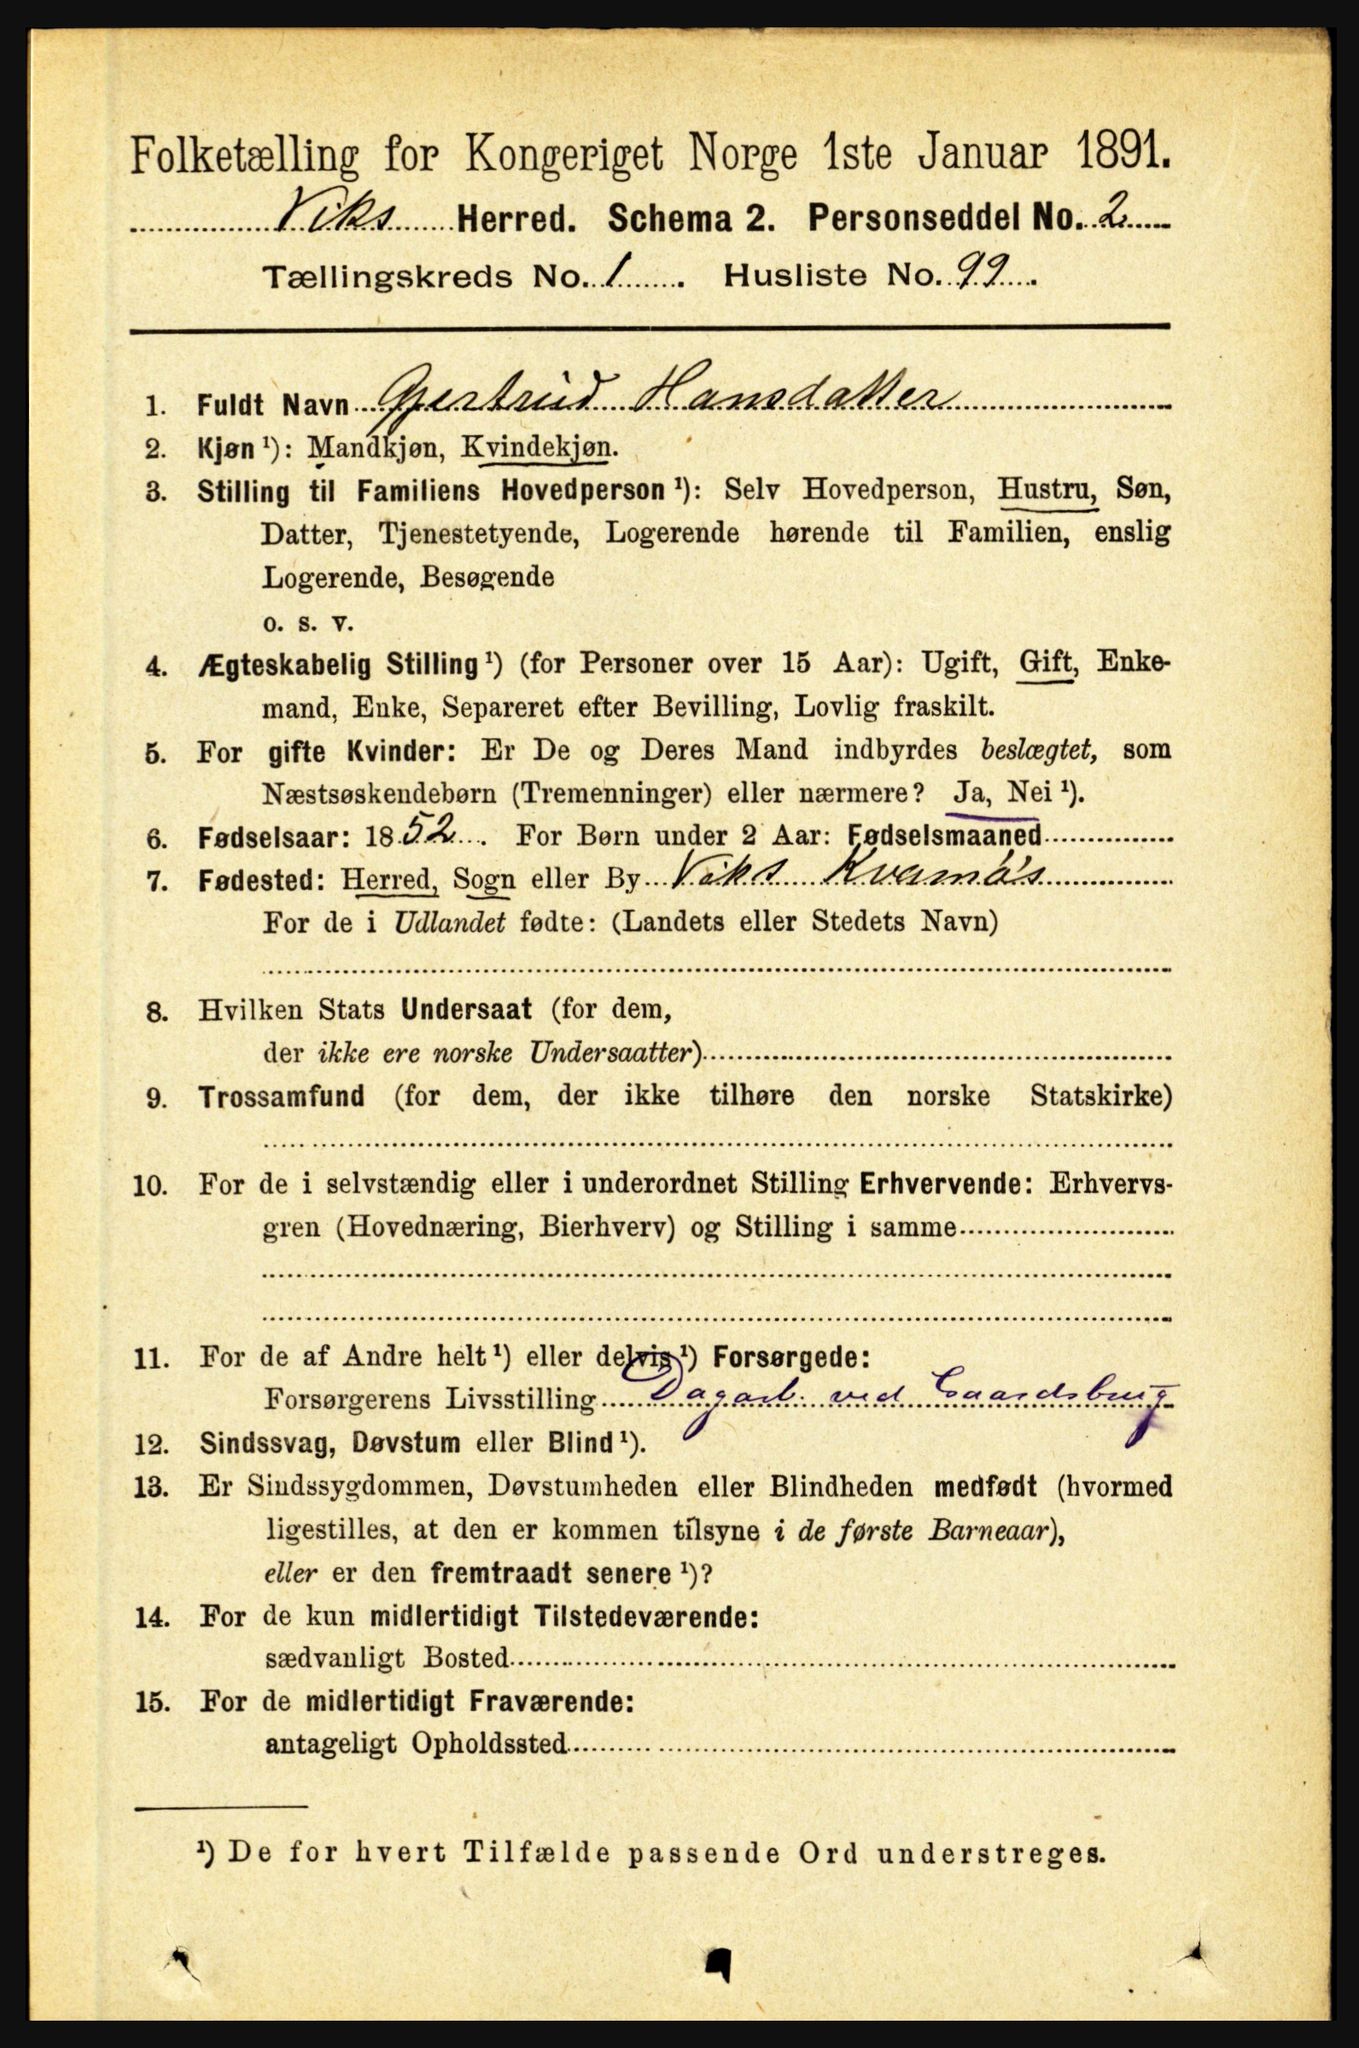 Folketælling for Kongeriget Norge 1ste Januar 1891.
Viks Herred. Schema 2. Personseddel No. 2
Tællingskreds No. 1. Husliste No. 99.
1. Fuldt Navn Gjertrud Hansdatter
2. Kjøn ¹): Mandkjøn, Kvindekjøn.
3. Stilling til Familiens Hovedperson ¹): Selv Hovedperson, Hustru, Søn,
Datter, Tjenestetyende, Logerende hørende til Familien, enslig
Logerende, Besøgende
o. s. v.
4. Ægteskabelig Stilling ¹) (for Personer over 15 Aar): Ugift, Gift, Enke-
mand, Enke, Separeret efter Bevilling, Lovlig fraskilt.
5. For gifte Kvinder: Er De og Deres Mand indbyrdes beslægtet, som
Næstsøskendebørn (Tremenninger) eller nærmere? Ja, Nei ¹).
6. Fødselsaar: 1852. For Børn under 2 Aar: Fødselsmaaned
7. Fødested: Herred, Sogn eller By Viks Kvamsø's
For de i Udlandet fødte: (Landets eller Stedets Navn)
8. Hvilken Stats Undersaat (for dem,
der ikke ere norske Undersaatter)
9. Trossamfund (for dem, der ikke tilhøre den norske Statskirke)
10. For de i selvstændig eller i underordnet Stilling Erhvervende: Erhvervs-
gren (Hovednæring, Bierhverv) og Stilling i samme
11. For de af Andre helt ¹) eller delvis ¹) Forsørgede:
Forsørgerens Livsstilling Dagarb. ved Gaardsbrug
12. Sindssvag, Døvstum eller Blind ¹).
13. Er Sindssygdommen, Døvstumheden eller Blindheden medfødt (hvormed
ligestilles, at den er kommen tilsyne i de første Barneaar),
eller er den fremtraadt senere ¹)?
14. For de kun midlertidigt Tilstedeværende:
sædvanligt Bosted
15. For de midlertidigt Fraværende:
antageligt Opholdssted
¹) De for hvert Tilfælde passende Ord understreges.